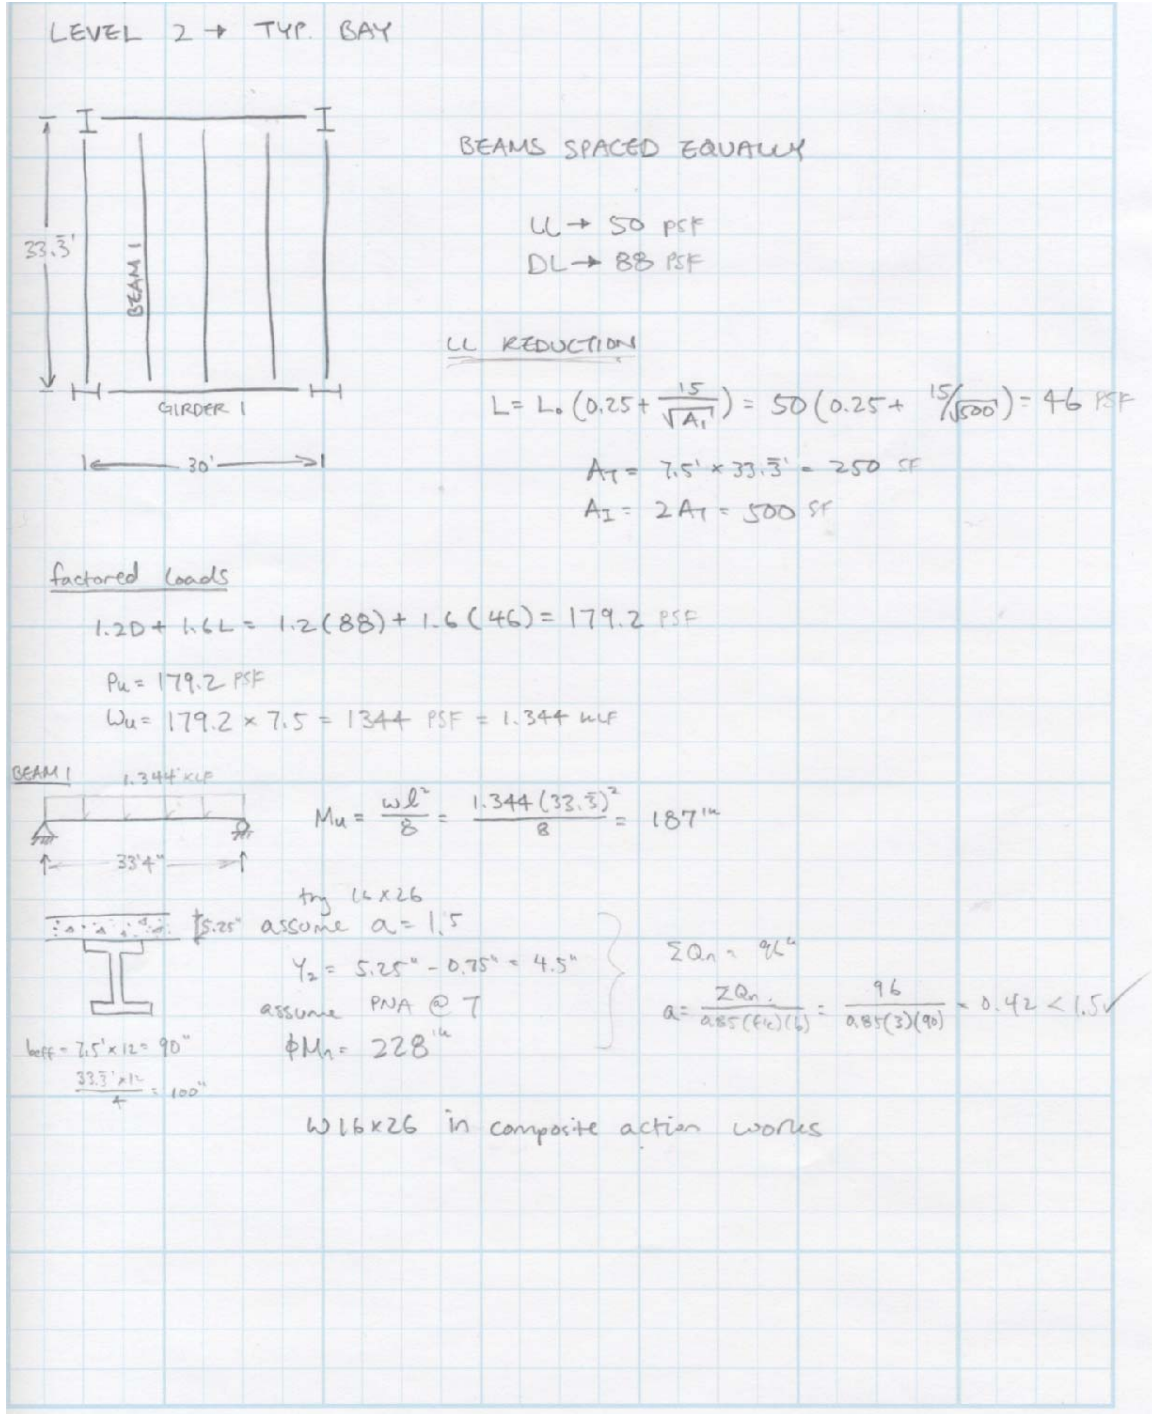 LEVEL 2 → TYP. BAY
BEAMS SPACED EQUALLY
LL → 50 PSF
DL → 88 PSF
33.3̅'
BEAM 1
GIRDER 1
30'
LL REDUCTION
L = L₀ (0.25 + 15/√A_I) = 50 (0.25 + 15/√500) = 46 PSF
A_T = 7.5' × 33.3̅' = 250 SF
A_I = 2A_T = 500 SF
factored loads
1.2D + 1.6L = 1.2(88) + 1.6(46) = 179.2 PSF
Pu = 179.2 PSF
Wu = 179.2 × 7.5 = 1344 PSF = 1.344 KLF
BEAM 1
1.344 KLF
33'4"
Mu = wl²/8 = 1.344(33.3̅)²/8 = 187'ᵏ
try 16×26
5.25"
assume a = 1.5
Y₂ = 5.25" - 0.75" = 4.5"
assume PNA @ 7
φMn = 228'ᵏ
ΣQn = 96ᵏ
a = ΣQn/0.85(f'c)(b) = 96/0.85(3)(90) = 0.42 < 1.5 ✓
beff = 7.5' × 12 = 90"
33.3̅' × 12/4 = 100"
W16×26 in composite action works